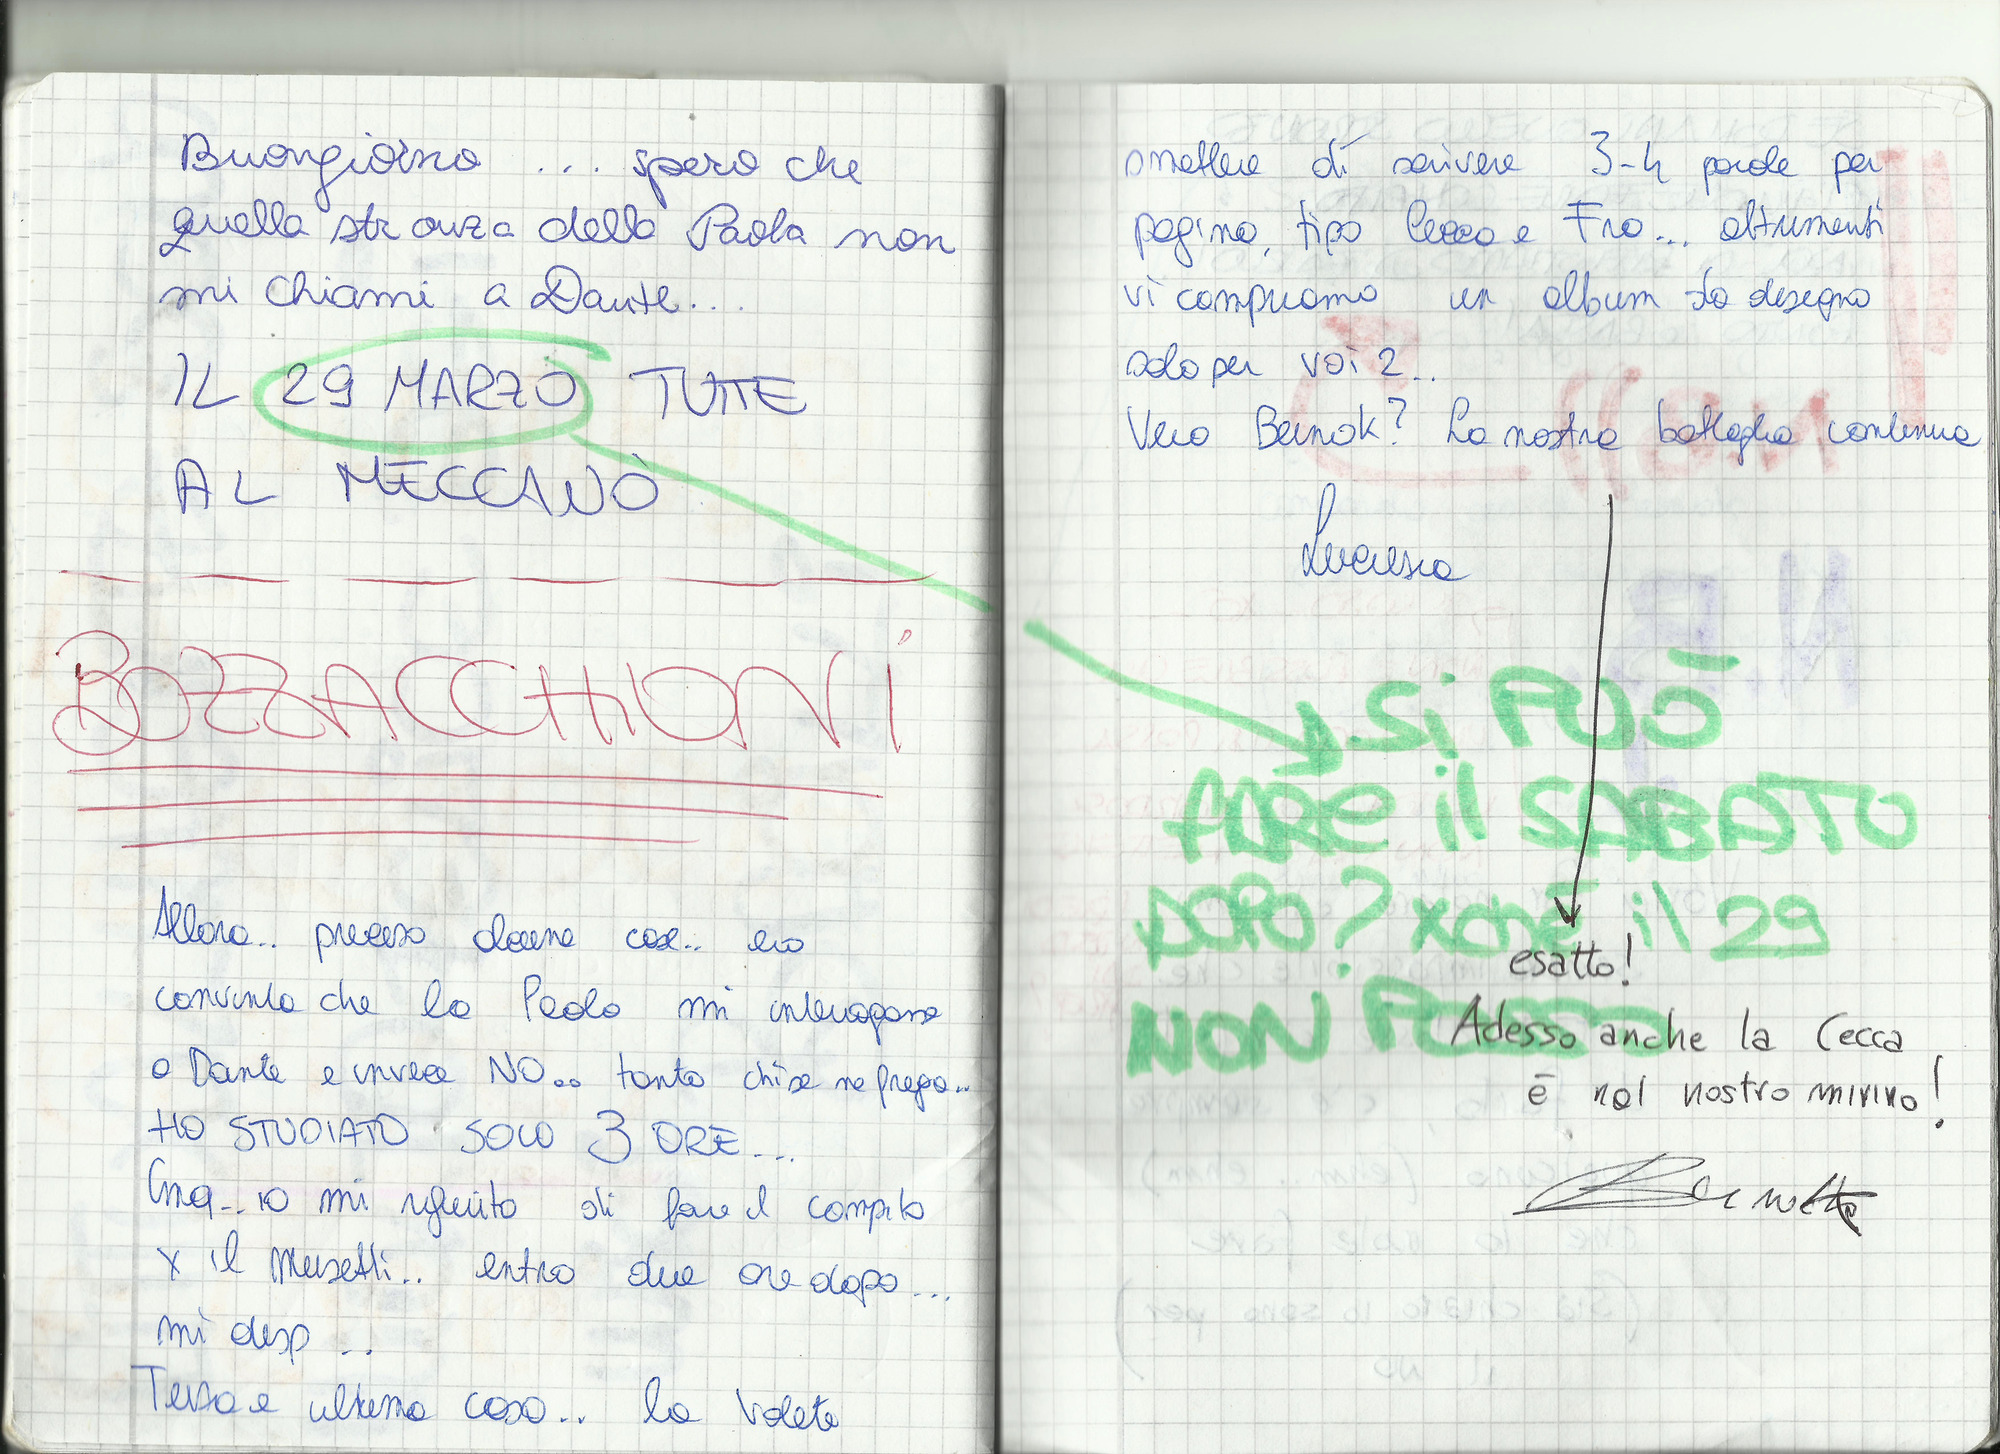 Buongiorno ... spero che
quella stronza della Paola non
mi chiami a Dante...
IL 29 MARZO TUTTE
AL MECCANÒ
BOZZACCHIONI
Allora.. preciso alcune cose.. ero
convinta che la Paola mi interrogasse
a Dante e invece NO... tanto chi se ne frega..
HO STUDIATO SOLO 3 ORE...
Cmq.. io mi rifiuto di fare il compito
x il Musetti.. entro due ore dopo...
mi disp ..
Terza e ultima cosa.. la volete
smettere di scrivere 3-4 parole per
pagina, tipo Cecca e Fra... altrimenti
vi compriamo un album da disegno
solo per voi 2..
Vero Bernok? La nostra battaglia continua
Lucrezia
Si PUÒ
FARE il SABATO
DOPO? xchè il 29
NON POSSO
esatto!
Adesso anche la Cecca
è nel nostro mirino!